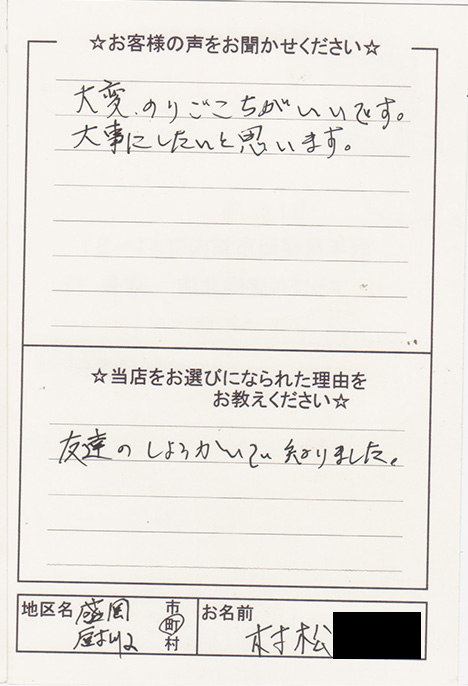 ☆お客様の声をお聞かせください☆
大変、のりごこちがいいです。
大事にしたいと思います。
☆当店をお選びになられた理由を
お教えください☆
友達のしょうかいでい知りました。
地区名 盛岡
市
町
村
お名前 村松